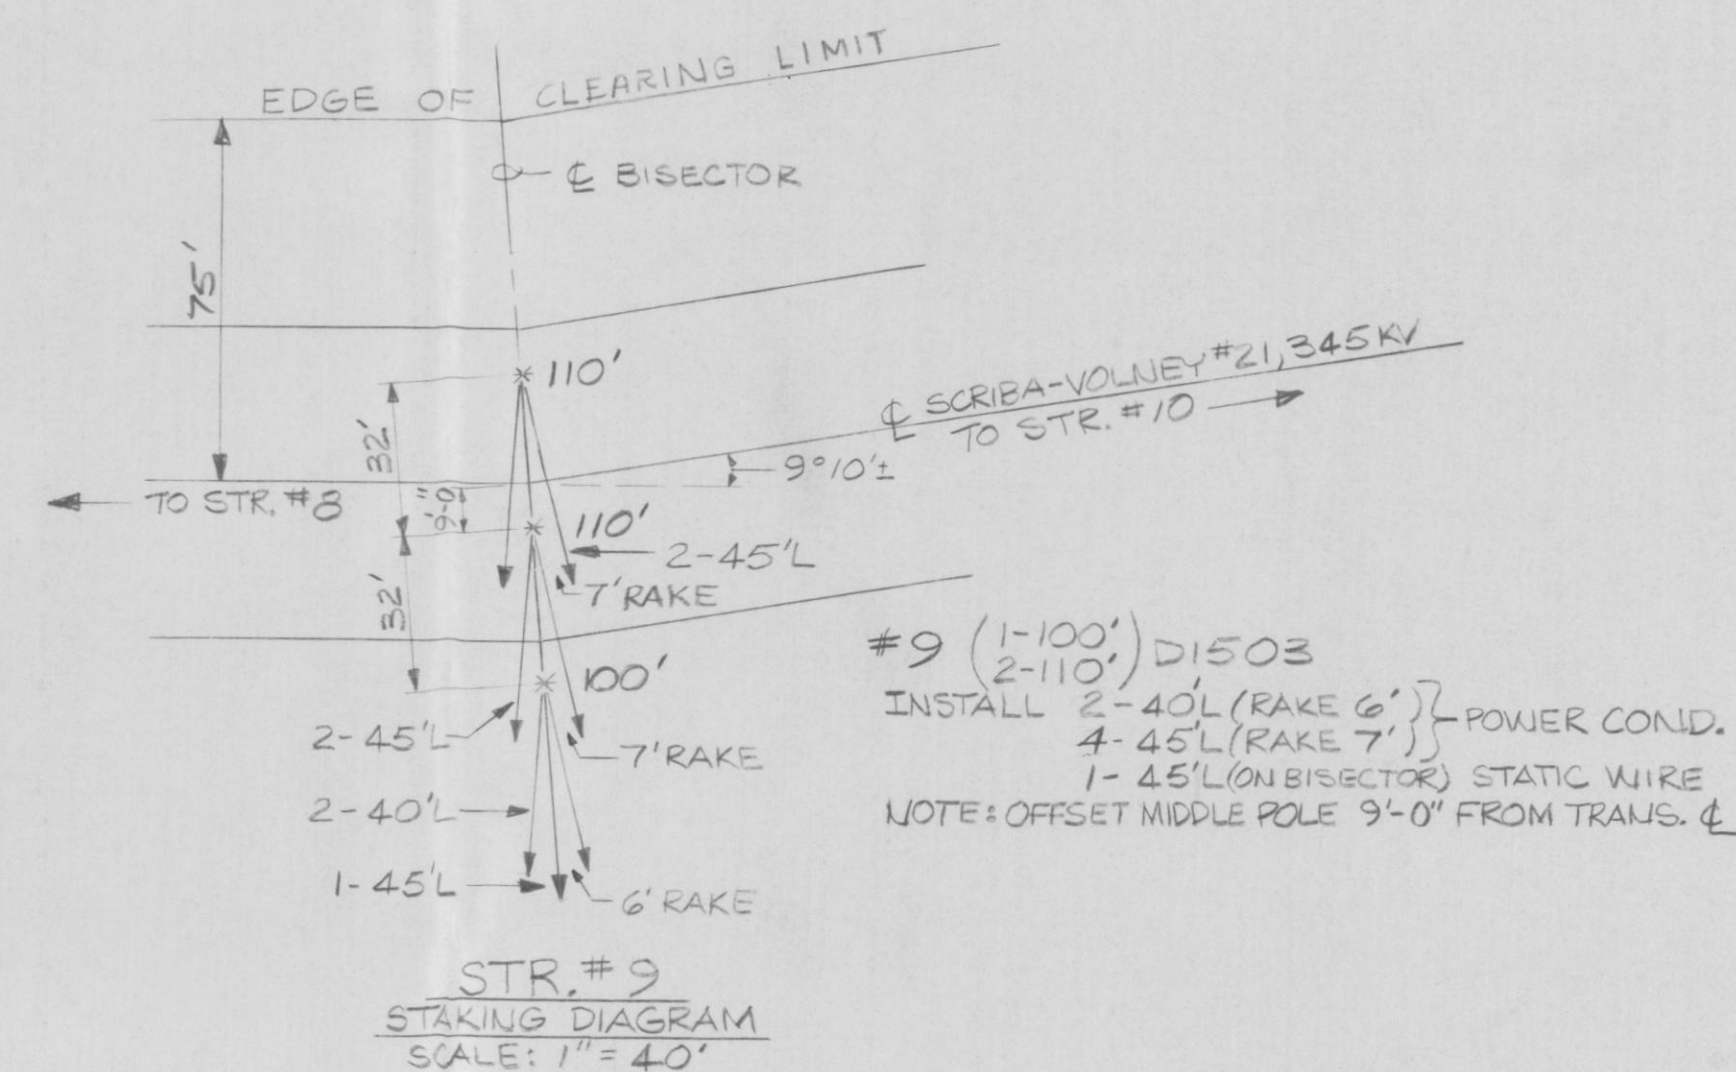 EDGE OF CLEARING LIMIT
℄ BISECTOR
75'
110'
32'
℄ SCRIBA-VOLNEY #21, 345 KV
TO STR. #10
9°10'±
TO STR. #8
9'-0"
110'
2-45'L
7' RAKE
32'
100'
2-45'L
7' RAKE
2-40'L
1-45'L
6' RAKE
#9 (1-100' 2-110') D1503
INSTALL 2-40'L (RAKE 6') } POWER COND.
4-45'L (RAKE 7')
1-45'L (ON BISECTOR) STATIC WIRE
NOTE: OFFSET MIDDLE POLE 9'-0" FROM TRANS. ℄
STR. #9
STAKING DIAGRAM
SCALE: 1" = 40'